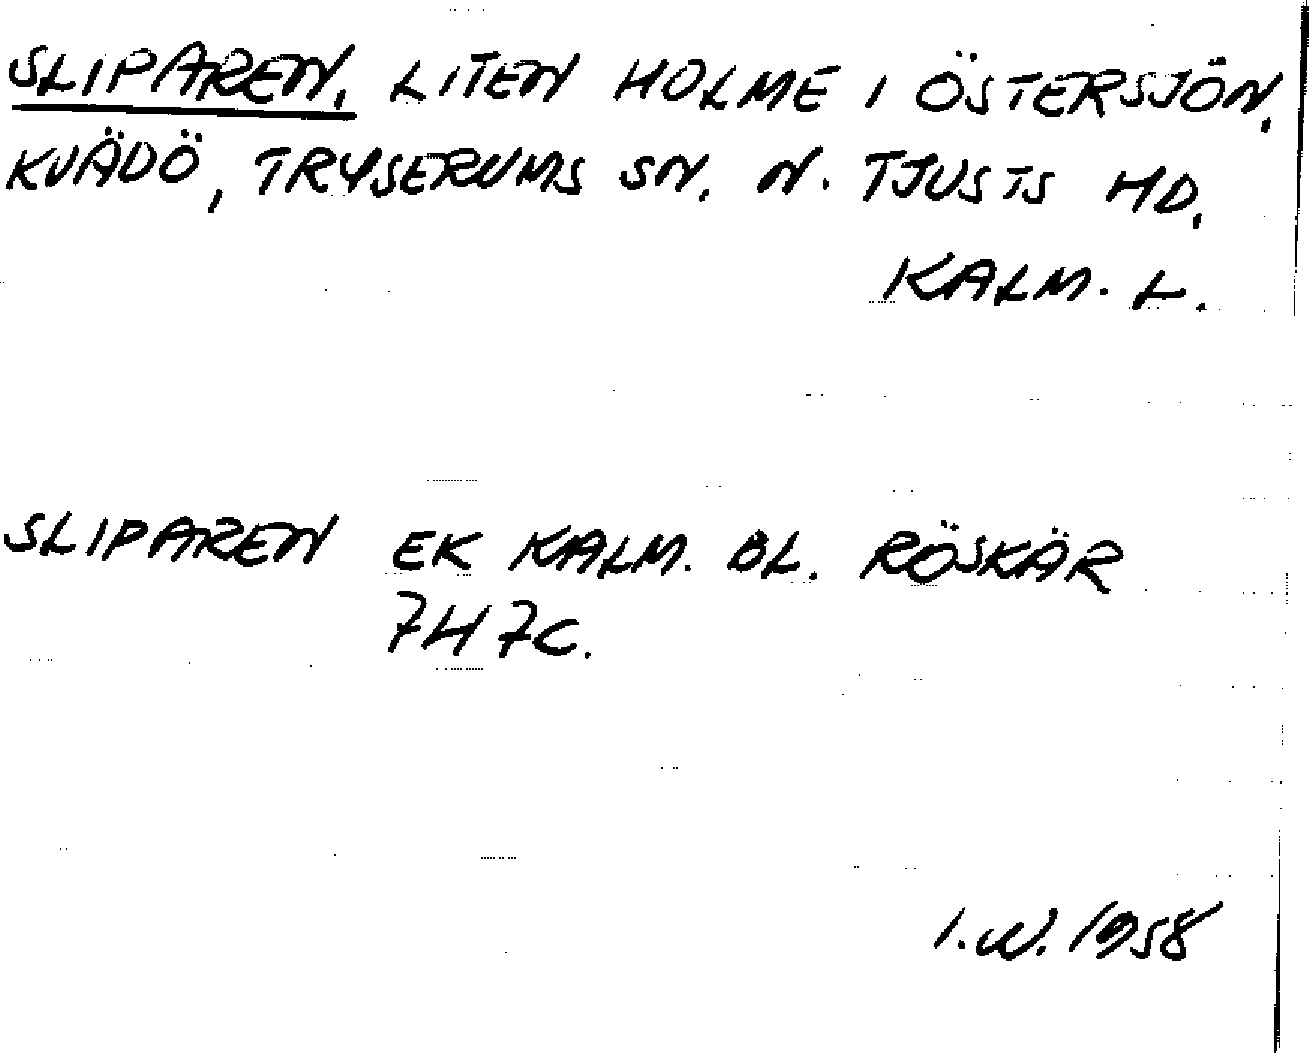 SLIPAREN, LITEN HOLME I ÖSTERSJÖN,
KVÄDÖ, TRYSERUMS SN. N. TJUSTS HD,
KALM. L.
SLIPAREN EK KALM. BL. RÖSKÄR
7H7C.
I.W. 1958